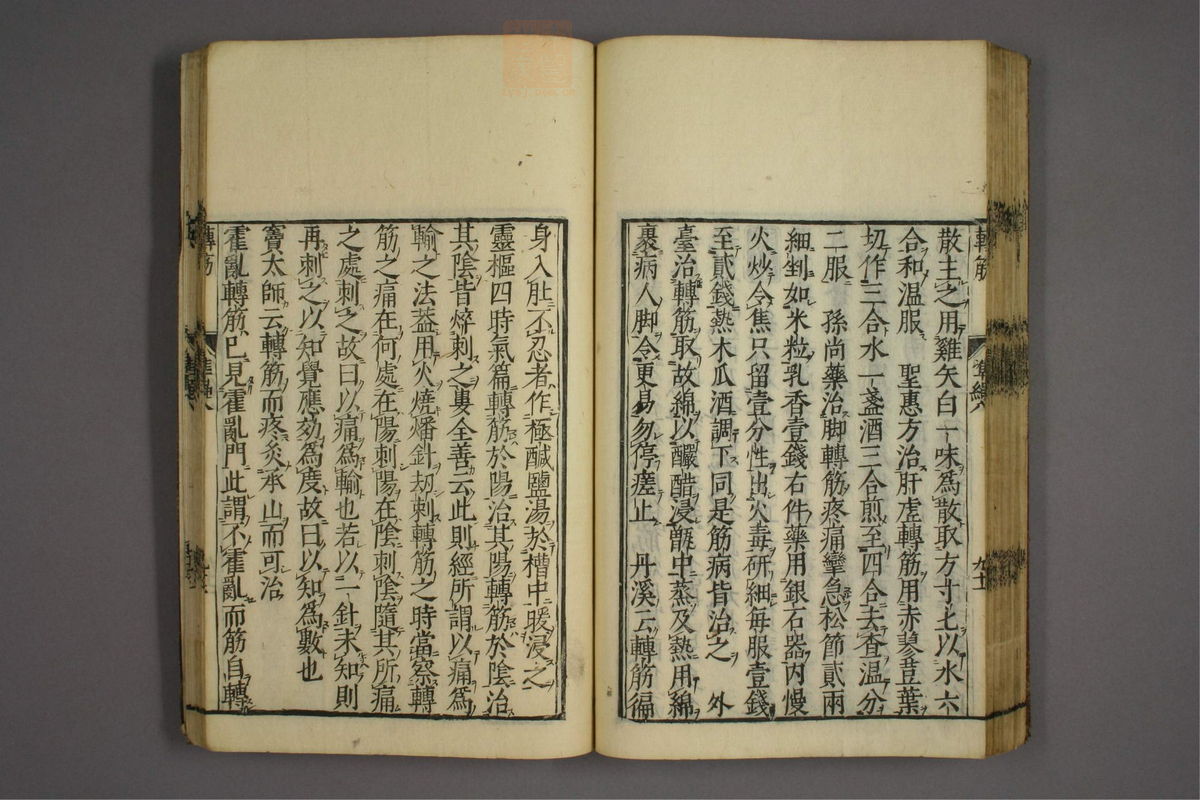 散主之用雞矢白一味為散取方寸匕以水六
合和溫服　聖惠方治肝虛轉筋用赤蓼莖葉
切作三合水一盞酒三合煎至四合去査溫分
二服　孫尚藥治脚轉筋疼痛攣急松節貳兩
細剉如米粒乳香壹錢右件藥用銀石器內慢
火炒令焦只留壹分性出火毒研細每服壹錢
至貳錢熱木瓜酒調下同是筋病皆治之　外
臺治轉筋取故綿以釅醋浸甑中蒸及熱用綿
裹病人脚令更易勿停瘥止　丹溪云轉筋徧
身入肚不忍者作極鹹鹽湯於槽中暖浸之
靈樞四時氣篇轉筋於陽治其陽轉筋於陰治
其陰皆焠刺之婁全善云此則經所謂以痛為
輸之法葢用火燒燔針刼刺轉筋之時當察轉
筋之痛在何處在陽刺陽在陰刺陰隨其所痛
之處刺之故曰以痛為輸也若以一針未知則
再刺之以知覺應効為度故曰以知為數也
竇太師云轉筋而疼灸承山而可治
霍亂轉筋已見霍亂門此謂不霍亂而筋自轉
轉筋